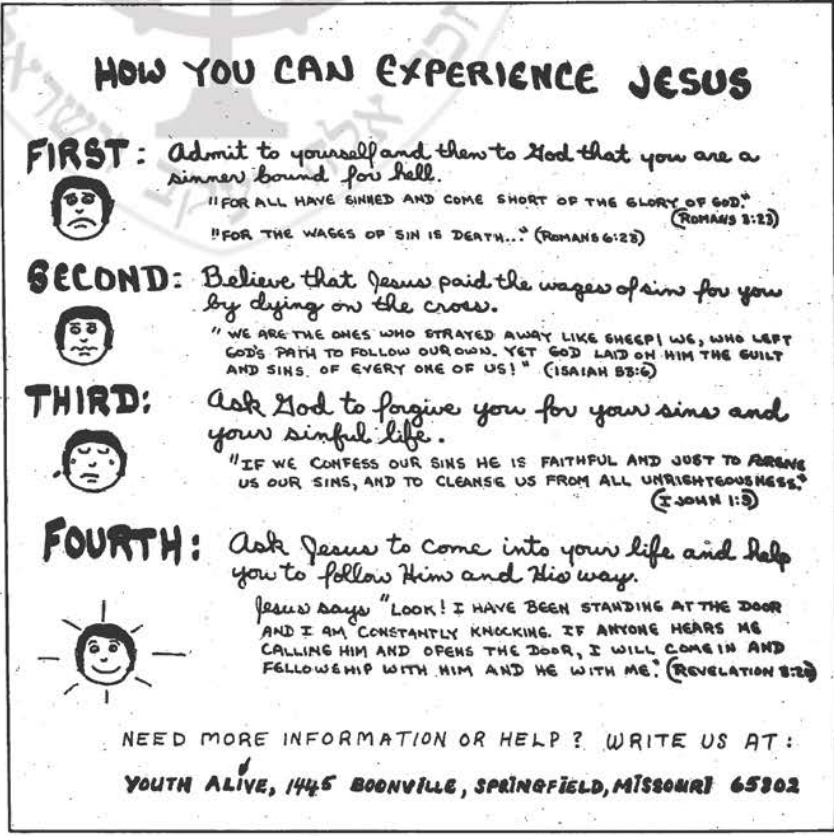 HOW YOU CAN EXPERIENCE JESUS
FIRST: Admit to yourself and then to God that you are a
sinner bound for hell.
"FOR ALL HAVE SINNED AND COME SHORT OF THE GLORY OF GOD."
(ROMANS 3:23)
"FOR THE WAGES OF SIN IS DEATH..." (ROMANS 6:23)
SECOND: Believe that Jesus paid the wages of sin for you
by dying on the cross.
"WE ARE THE ONES WHO STRAYED AWAY LIKE SHEEP! WE, WHO LEFT
GOD'S PATH TO FOLLOW OUR OWN. YET GOD LAID ON HIM THE GUILT
AND SINS OF EVERY ONE OF US!" (ISAIAH 53:6)
THIRD: Ask God to forgive you for your sins and
your sinful life.
"IF WE CONFESS OUR SINS HE IS FAITHFUL AND JUST TO FORGIVE
US OUR SINS, AND TO CLEANSE US FROM ALL UNRIGHTEOUSNESS."
(I JOHN 1:9)
FOURTH: Ask Jesus to come into your life and help
you to follow Him and His way.
Jesus says "LOOK! I HAVE BEEN STANDING AT THE DOOR
AND I AM CONSTANTLY KNOCKING. IF ANYONE HEARS ME
CALLING HIM AND OPENS THE DOOR, I WILL COME IN AND
FELLOWSHIP WITH HIM AND HE WITH ME." (REVELATION 3:20)
NEED MORE INFORMATION OR HELP? WRITE US AT:
YOUTH ALIVE, 1445 BOONVILLE, SPRINGFIELD, MISSOURI 65802